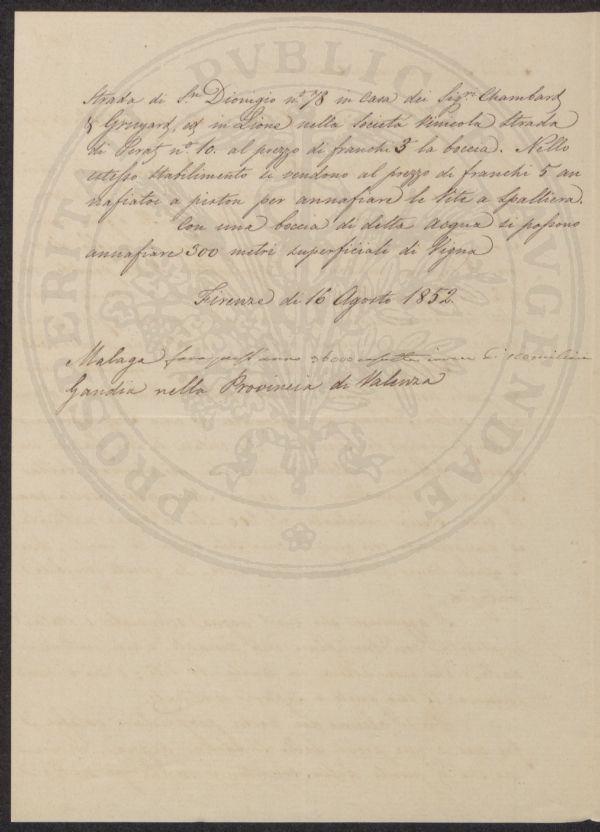 Strada di Sn Dionigio no. 78 in Casa dei Sigri Chambard
& Gruyard, ed in Lione nella Società Vinicola Strada
di Perat no. 10. al prezzo di franchi 3 la boccia. Nello
istesso stabilimento si vendono al prezzo di franchi 5 an
nafiatoi a piston per annafiare le Vite a spalliera.
Con una boccia di detta Acqua si possono
annafiare 300 metri superficiali di Vigna
Firenze di 16 Agosto 1852
Malaga anno 36000 invece di
Gandia nella Provincia di Valenza
PROSPERITATI PVBLICAE AVGENDAE